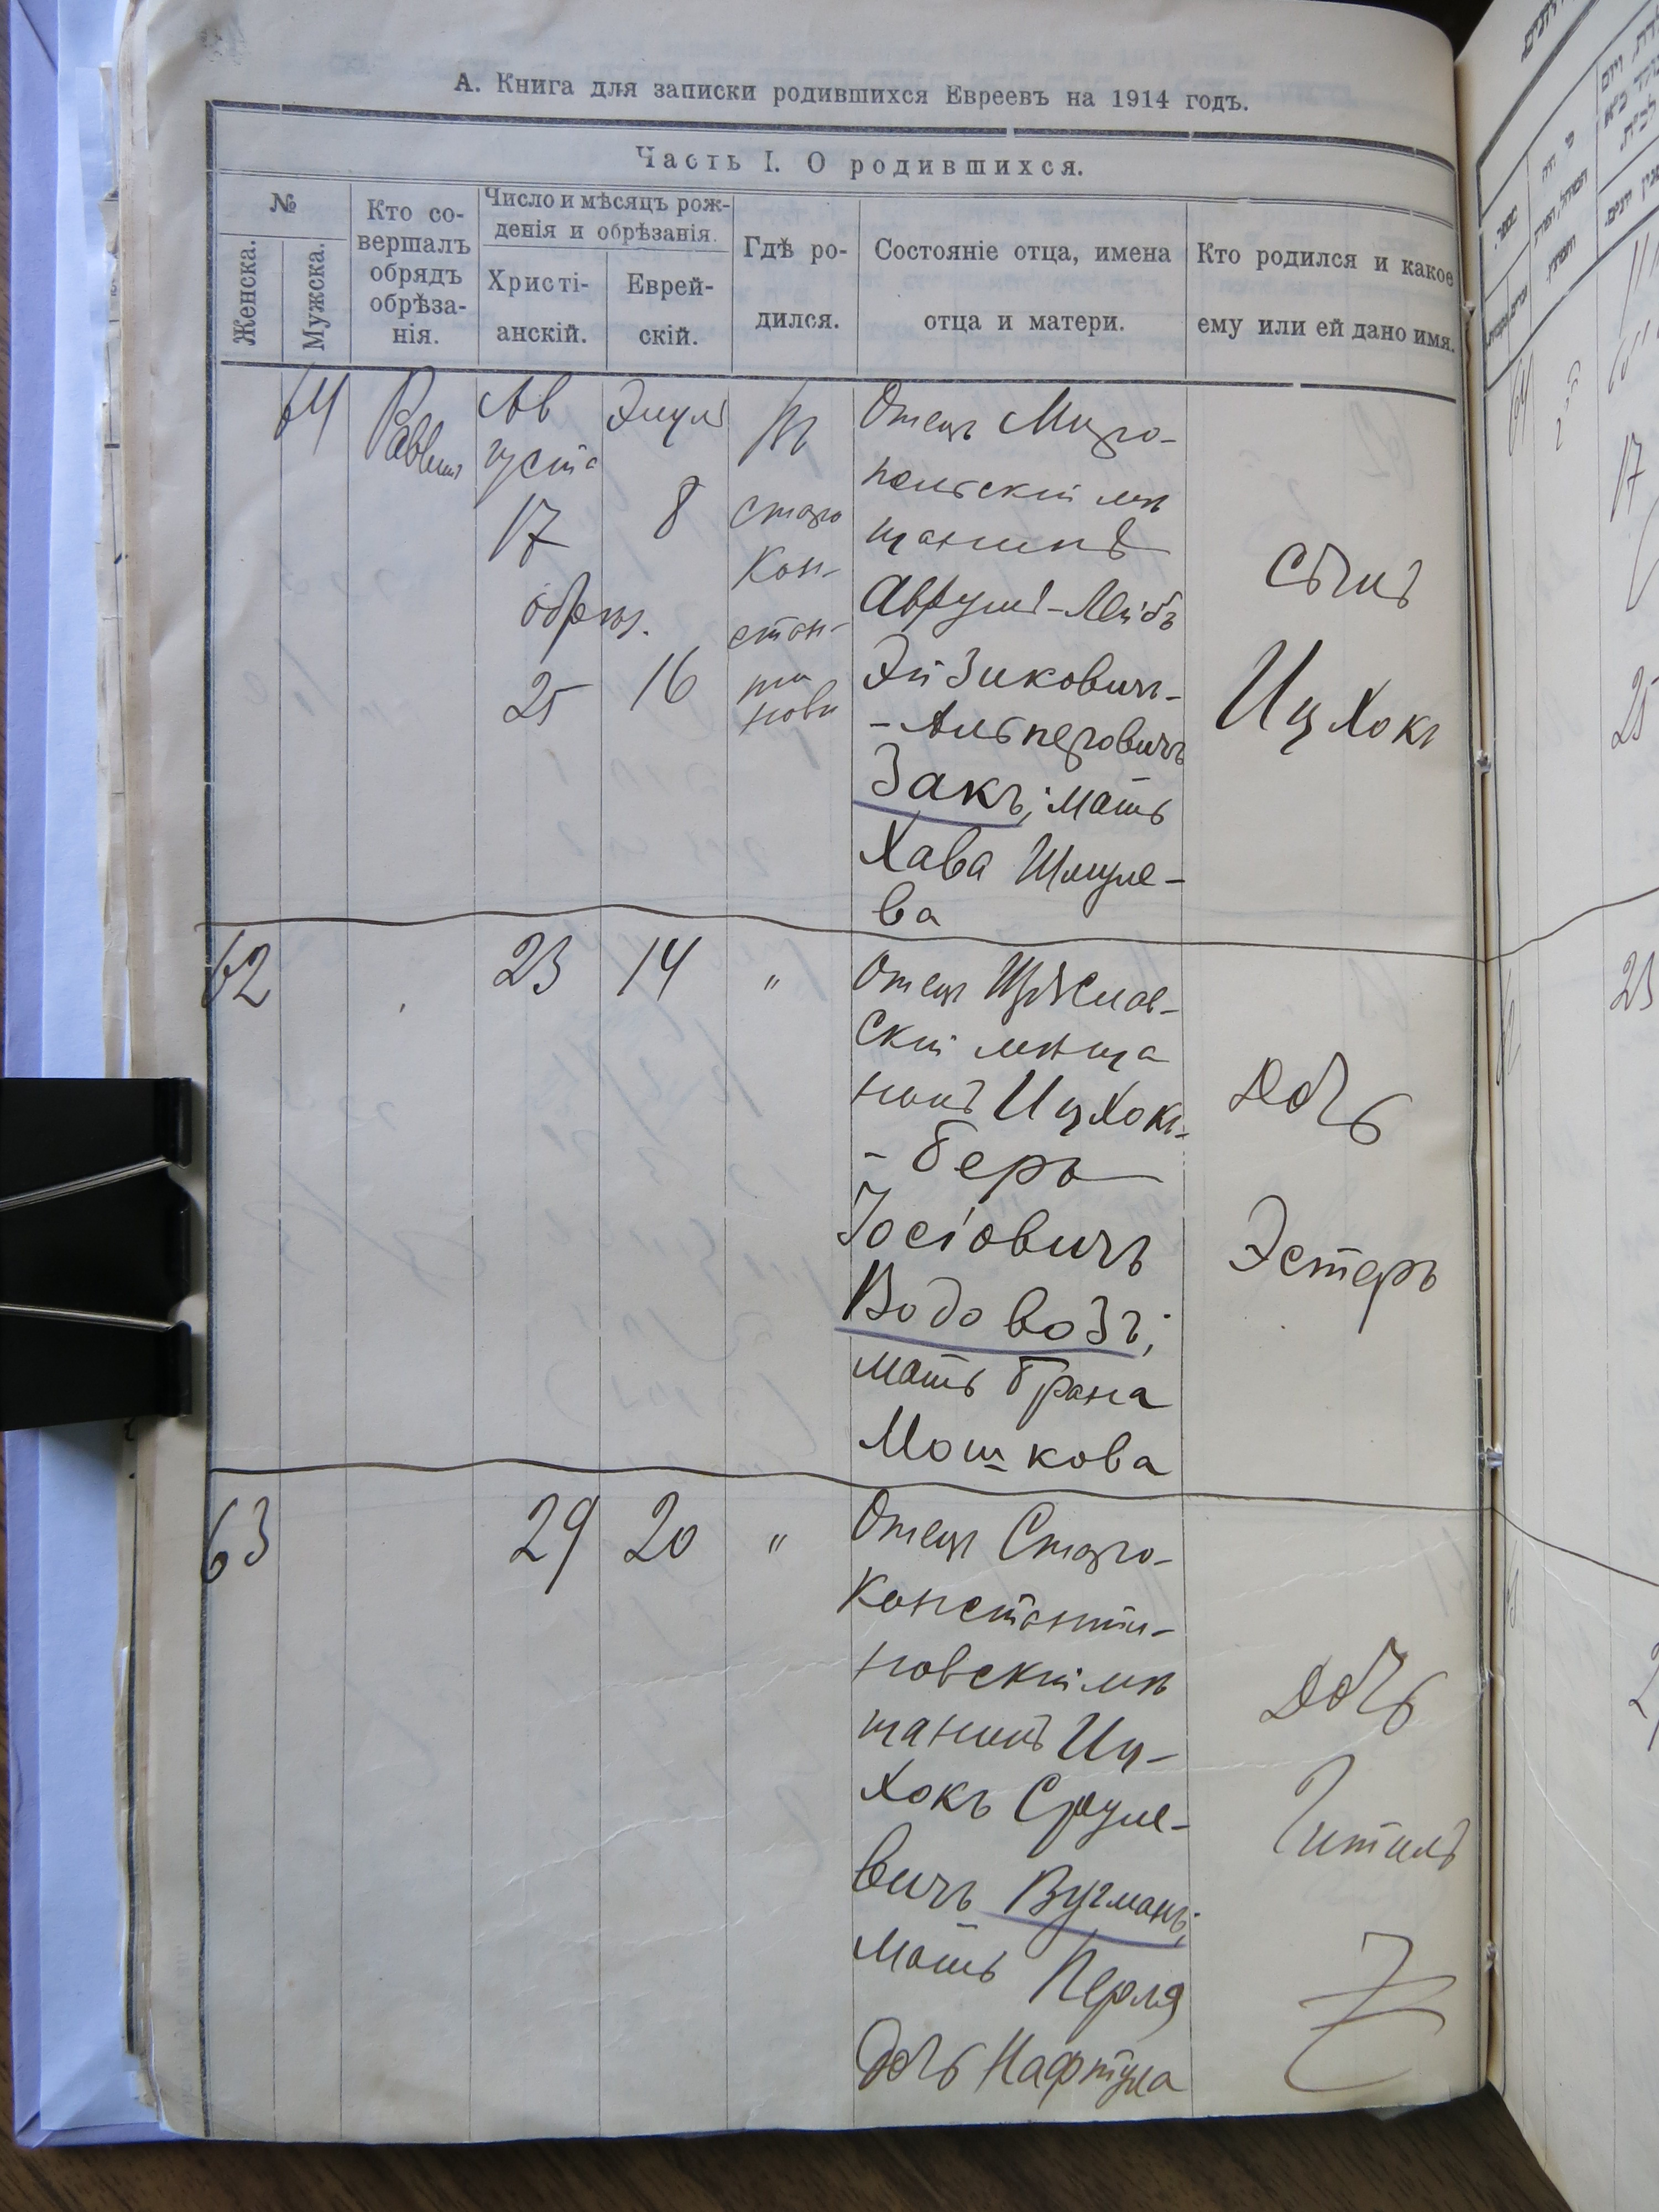 А. Книга для записки родившихся Евреевъ на 1914 годъ.
Часть I. О родившихся.
№
Женска.
Мужска.
Кто со-
вершалъ
обрядъ
обрѣза-
нія.
Число и мѣсяцъ рож-
денія и обрѣзанія.
Христі-
анскій.
Еврей-
скій.
Гдѣ ро-
дился.
Состояніе отца, имена
отца и матери.
Кто родился и какое
ему или ей дано имя.
64
Раввинъ
Ав
густа
17
обрѣз.
25
Элула
8
16
Въ
старо
кон-
стан-
ти
новѣ
Отецъ Миро-
польскій мѣ
щанинъ
Аврумъ-Лейбъ
Эйзиковичъ-
-Альперовичъ
Закъ; мать
Хава Шмуле-
ва
сынъ
Ицхокъ
62
23
14
"
Отецъ Изяслав-
скій мѣща
нинъ Ицхокъ-
-Беръ
Іосіовичъ
Водовозъ;
мать Брана
Мошкова
дочь
Эстеръ
63
29
20
"
Отецъ Старо-
константи-
новскій мѣ
щанинъ Иц-
хокъ Сруле-
вичъ Вугманъ;
мать Перля
дочь Нафтула
дочь
Гитль